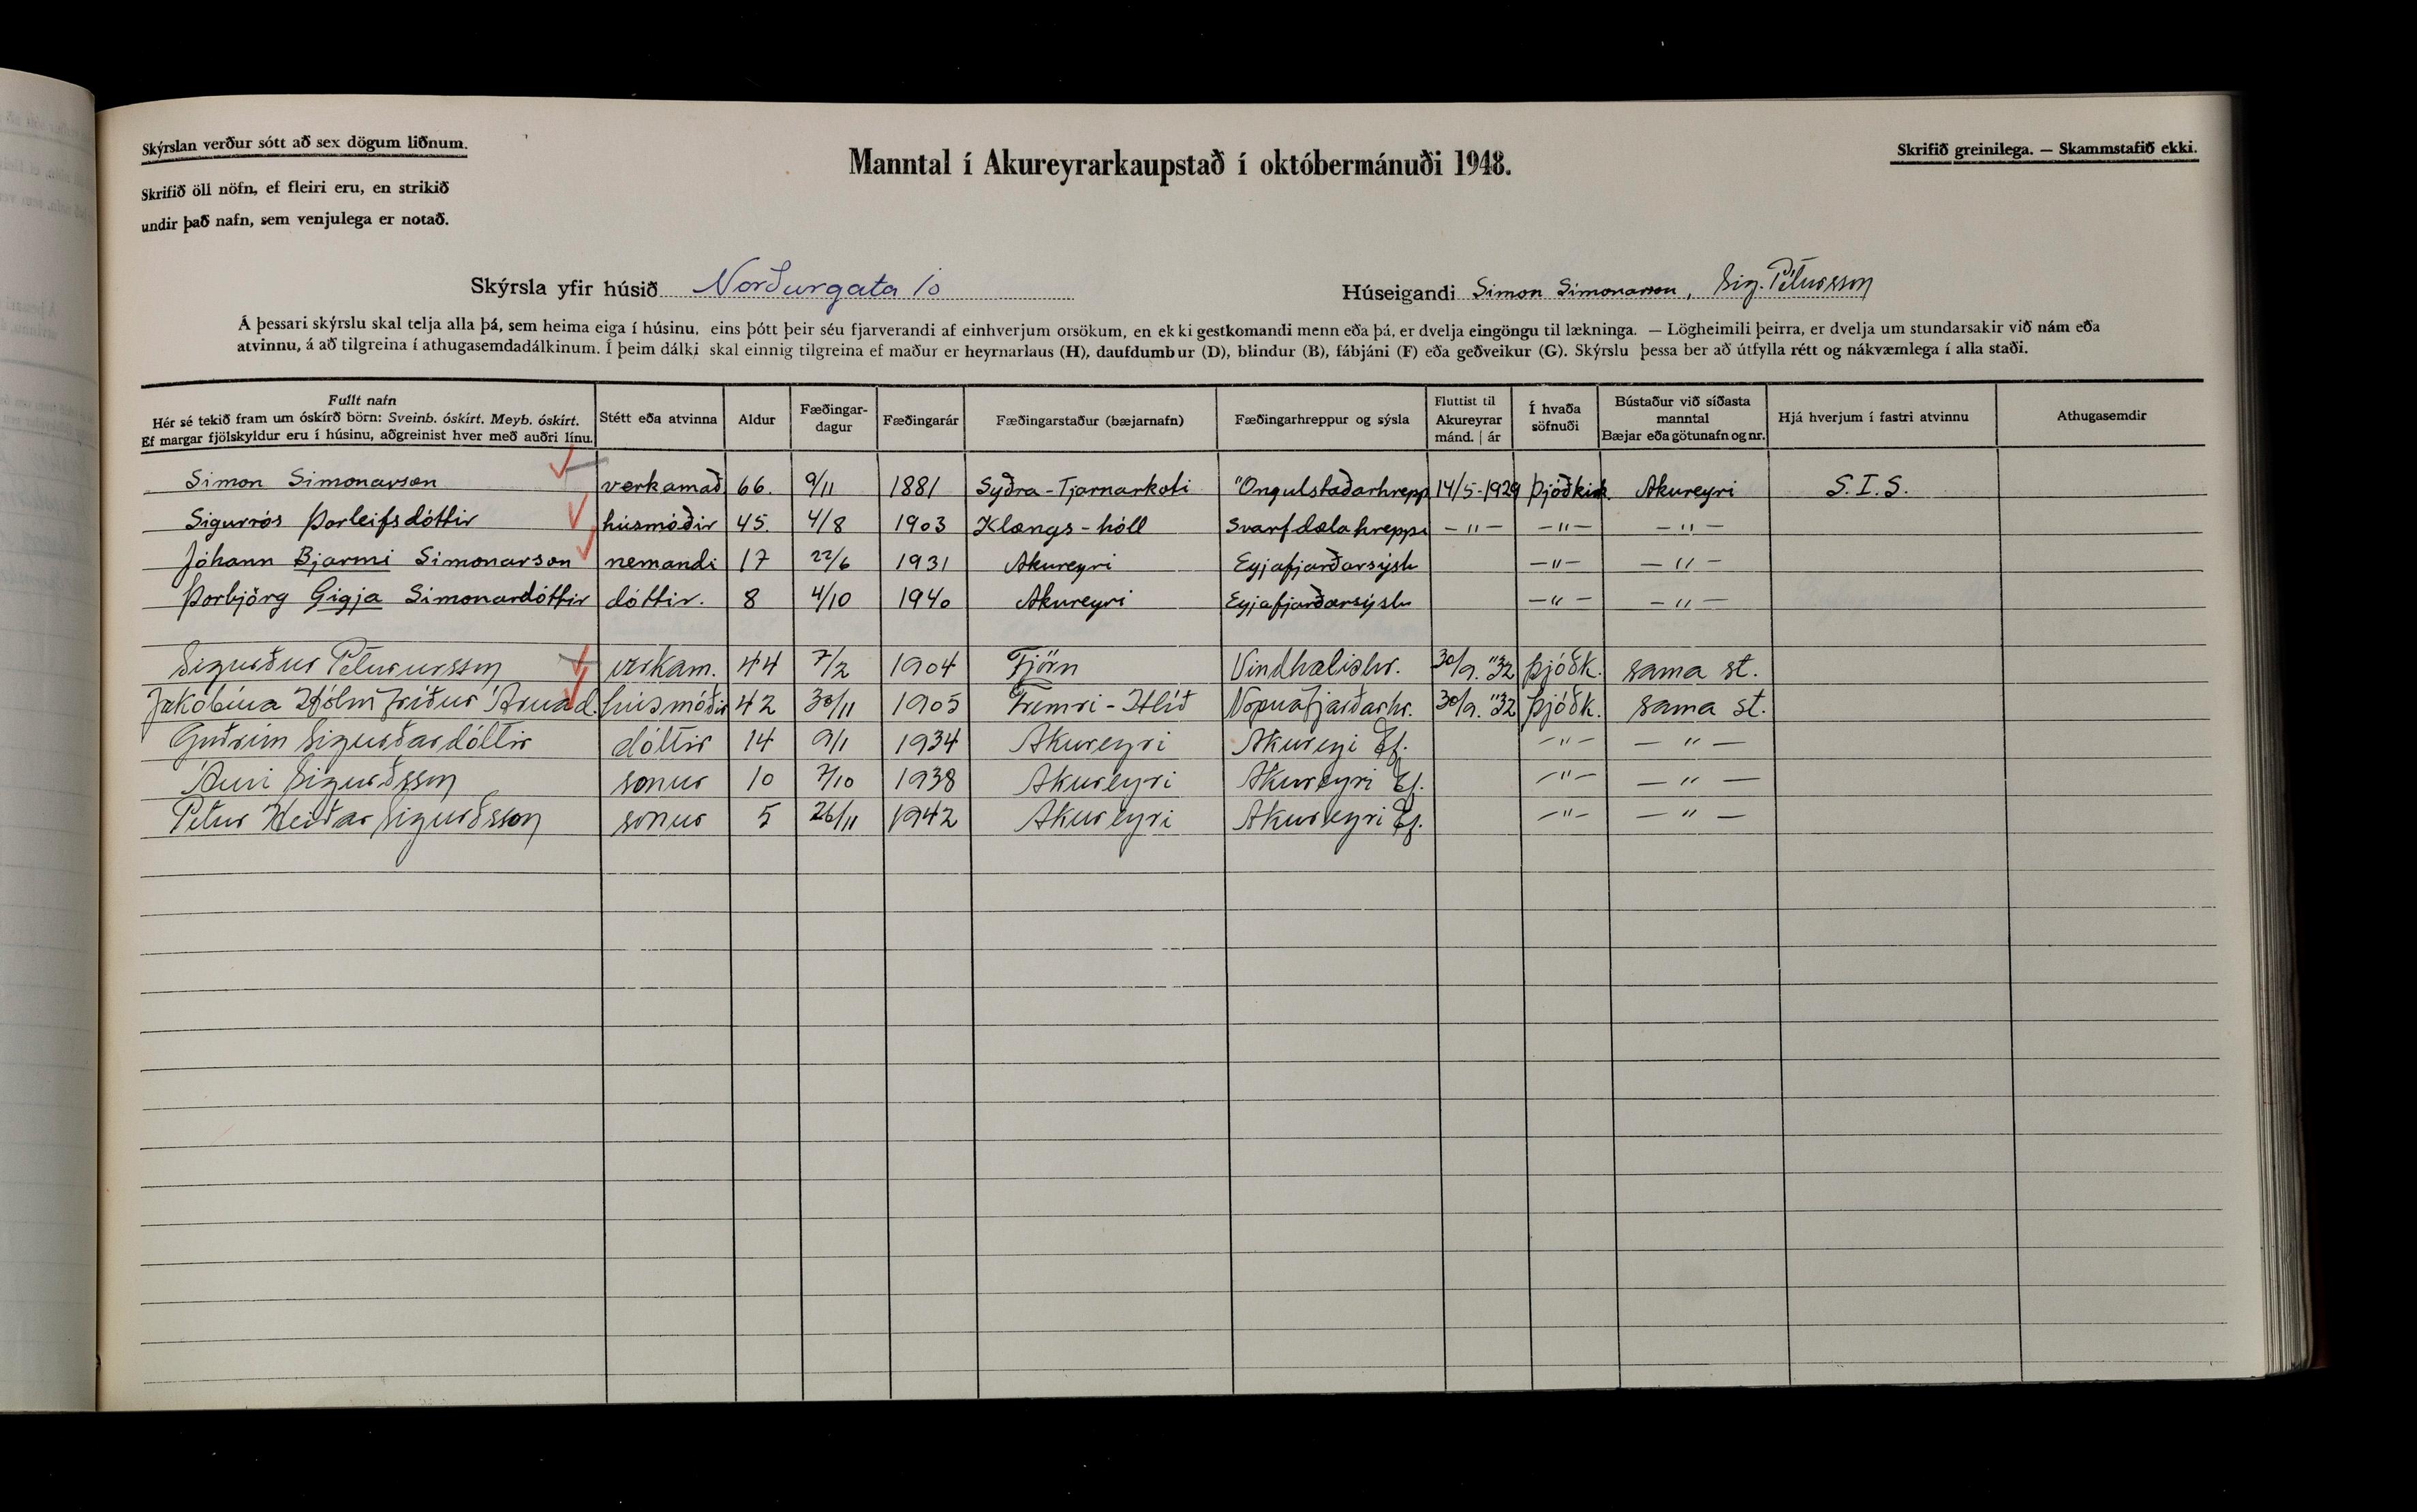 Skýrslan verður sótt að sex dögum liðnum.
Skrifið öll nöfn, ef fleiri eru, en strikið
undir það nafn, sem venjulega er notað.
Manntal í Akureyrarkaupstað í októbermánuði 1948.
Skrifið greinilega. — Skammstafið ekki.
Skýrsla yfir húsið Norðurgata 10
Húseigandi Simon Simonarson, Sig. Pétursson
Á þessari skýrslu skal telja alla þá, sem heima eiga í húsinu, eins þótt þeir séu fjarverandi af einhverjum orsökum, en ekki gestkomandi menn eða þá, er dvelja eingöngu til lækninga. — Lögheimili þeirra, er dvelja um stundarsakir við nám eða
atvinnu, á að tilgreina í athugasemdadálkinum. Í þeim dálki skal einnig tilgreina ef maður er heyrnarlaus (H), daufdumbur (D), blindur (B), fábjáni (F) eða geðveikur (G). Skýrslu þessa ber að útfylla rétt og nákvæmlega í alla staði.
Fullt nafn
Hér sé tekið fram um óskírð börn: Sveinb. óskírt. Meyb. óskírt.
Ef margar fjölskyldur eru í húsinu, aðgreinist hver með auðri línu.
Stétt eða atvinna
Aldur
Fæðingar-
dagur
Fæðingarár
Fæðingarstaður (bæjarnafn)
Fæðingarhreppur og sýsla
Fluttist til
Akureyrar
mánd. | ár
Í hvaða
söfnuði
Bústaður við síðasta
manntal
Bæjar eða götunafn og nr.
Hjá hverjum í fastri atvinnu
Athugasemdir
Simon Simonarson verkamað 66. 9/11 1881 Syðra-Tjarnarkoti "Ongulstaðarhrepp 14/5-1929 Þjóðkirk. Akureyri S.I.S.
Sigurrós Þorleifsdóttir húsmóðir 45. 4/8 1903 Klængs-hóll Svarfdælahreppi —"— —"— —"—
Jóhann Bjarmi Simonarson nemandi 17 22/6 1931 Akureyri Eyjafjarðarsýslu —"— —"—
Þorbjörg Gigja Simonardóttir dóttir. 8 4/10 1940 Akureyri Eyjafjarðarsýslu —"— —"—
Sigurður Péturursson verkam. 44 7/2 1904 Tjörn Vindhælishr. 30/9. "32 þjóðk. sama st.
Jakobína Hólmfríður Árnad. húsmóðir 42 30/11 1905 Fremri-Hlíð Vopnafjarðarhr. 30/9. "32 þjóðk. sama st.
Guðrún Sigurðardóttir dóttir 14 9/1 1934 Akureyri Akureyi Ef. —"— —"—
Árni Sigurðsson sonur 10 7/10 1938 Akureyri Akureyri Ef. —"— —"—
Pétur Heiðar Sigurðsson sonur 5 26/11 1942 Akureyri Akureyri Ef. —"— —"—